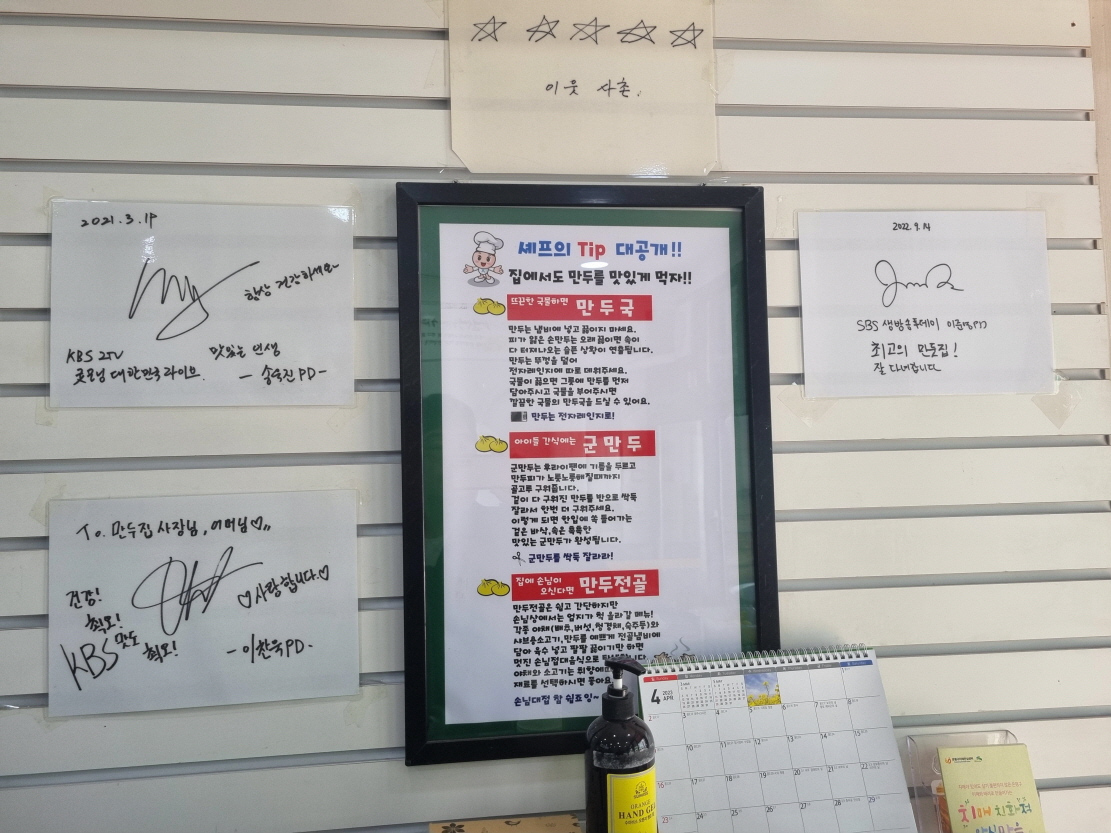 이웃 사촌.
2021.3.19
항상 건강하세요
KBS 2TV
굿모닝 대한민국 라이브.
맛있는 인생
- 송욱진 PD -
To. 만두집 사장님, 어머님♡,,
건강!
최고!
맛도
최고!
KBS
♡사랑합니다.♡
- 이찬욱 PD -
셰프의 Tip 대공개!!
집에서도 만두를 맛있게 먹자!!
뜨끈한 국물하면 만두국
만두는 냄비에 넣고 끓이지 마세요.
피가 얇은 손만두는 오래 끓이면 속이
다 터져나오는 슬픈 상황이 연출됩니다.
만두는 뚜껑을 덮어
전자레인지에 따로 데워주세요.
국물이 끓으면 그릇에 만두를 먼저
담아주시고 국물을 부어주시면
깔끔한 국물의 만두국을 드실 수 있어요.
만두는 전자레인지로!
아이들 간식에는 군만두
군만두는 후라이팬에 기름을 두르고
만두피가 노릇노릇해질때까지
골고루 구워줍니다.
겉이 다 구워진 만두를 반으로 싹둑
잘라서 한번 더 구워주세요.
이렇게 되면 한입에 쏙 들어가는
겉은 바삭,속은 촉촉한
맛있는 군만두가 완성됩니다.
군만두를 싹둑 잘라라!
집에 손님이 오신다면 만두전골
만두전골은 쉽고 간단하지만
손님상에서는 엄지가 척 올라갈 메뉴!
각종 야채(배추,버섯,청경채,숙주등)와
샤브용소고기,만두를 예쁘게 전골냄비에
담아 육수 넣고 팔팔 끓이기만 하면
멋진 손님접대음식으로
야채와 소고기는 취향에
재료를 선택하시면 좋아요
손님대접 참 쉽죠잉~
2022. 9. 14
SBS 생방송투데이
최고의 만둣집!
잘 다녀갑니다
4 2023 APR
2 3 4 5 6 7 8
9 10 11 12 13 14 15
16 17 18 19 20 21 22
23 24 25 26 27 28 29
ORANGE
HAND GEL
치매 친화적
안심마을